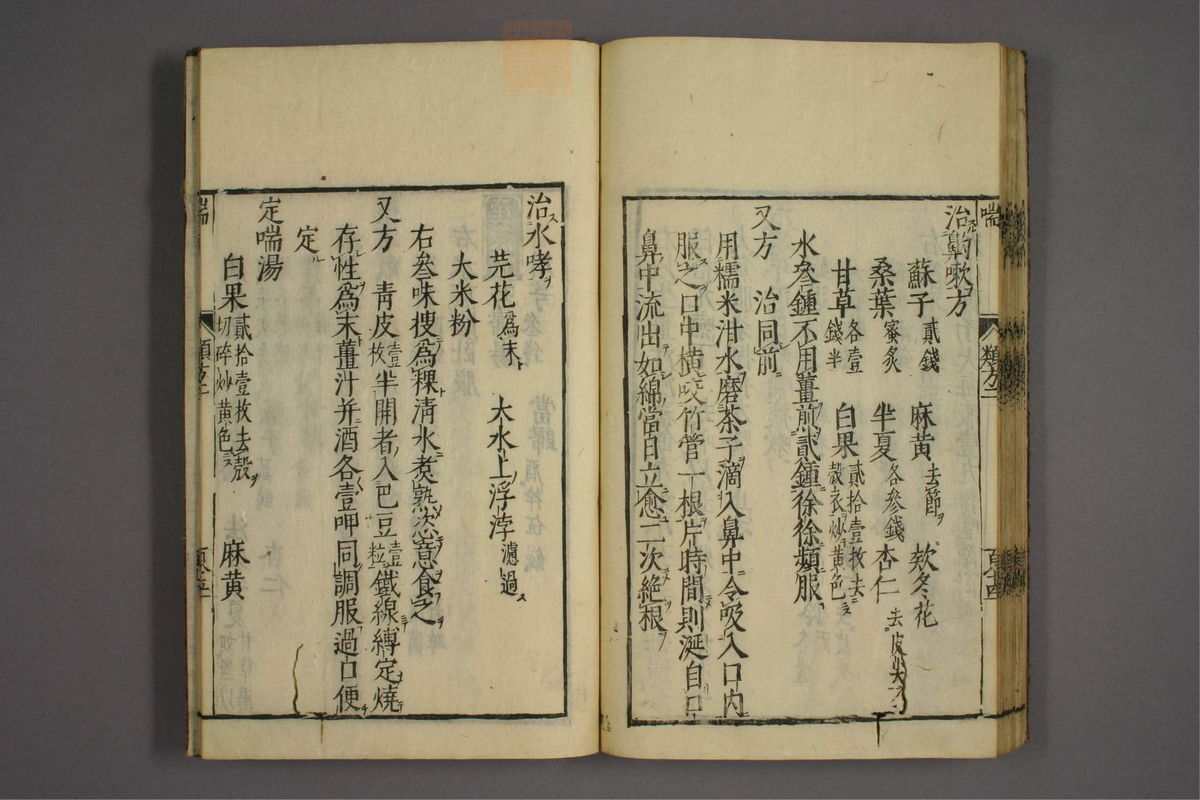 喘
治齁嗽方
蘇子貳錢 麻黄去節 欸冬花
桑葉蜜炙 半夏各參錢 杏仁去皮尖
甘草各壹錢半 白果貳拾壹枚去殼衣炒黄色
水叄鍾不用薑煎貳鍾徐徐頻服
又方 治同前
用糯米泔水磨茶子滴入鼻中令吸入口内
服之口中横咬竹管一根片時間則涎自口
鼻中流出如綿當日立愈二次絶根
類方二
治水哮
芫花爲末 大水上浮浡濾過
大米粉
右叄味搜爲粿清水煑熟恣意食之
又方 青皮壹枚半開者入巴豆壹粒鐵線縛定燒
存性爲末薑汁并酒各壹呷同調服過口便
定
定喘湯
白果貳拾壹枚去殼切碎炒黄色 麻黄
喘
類方二